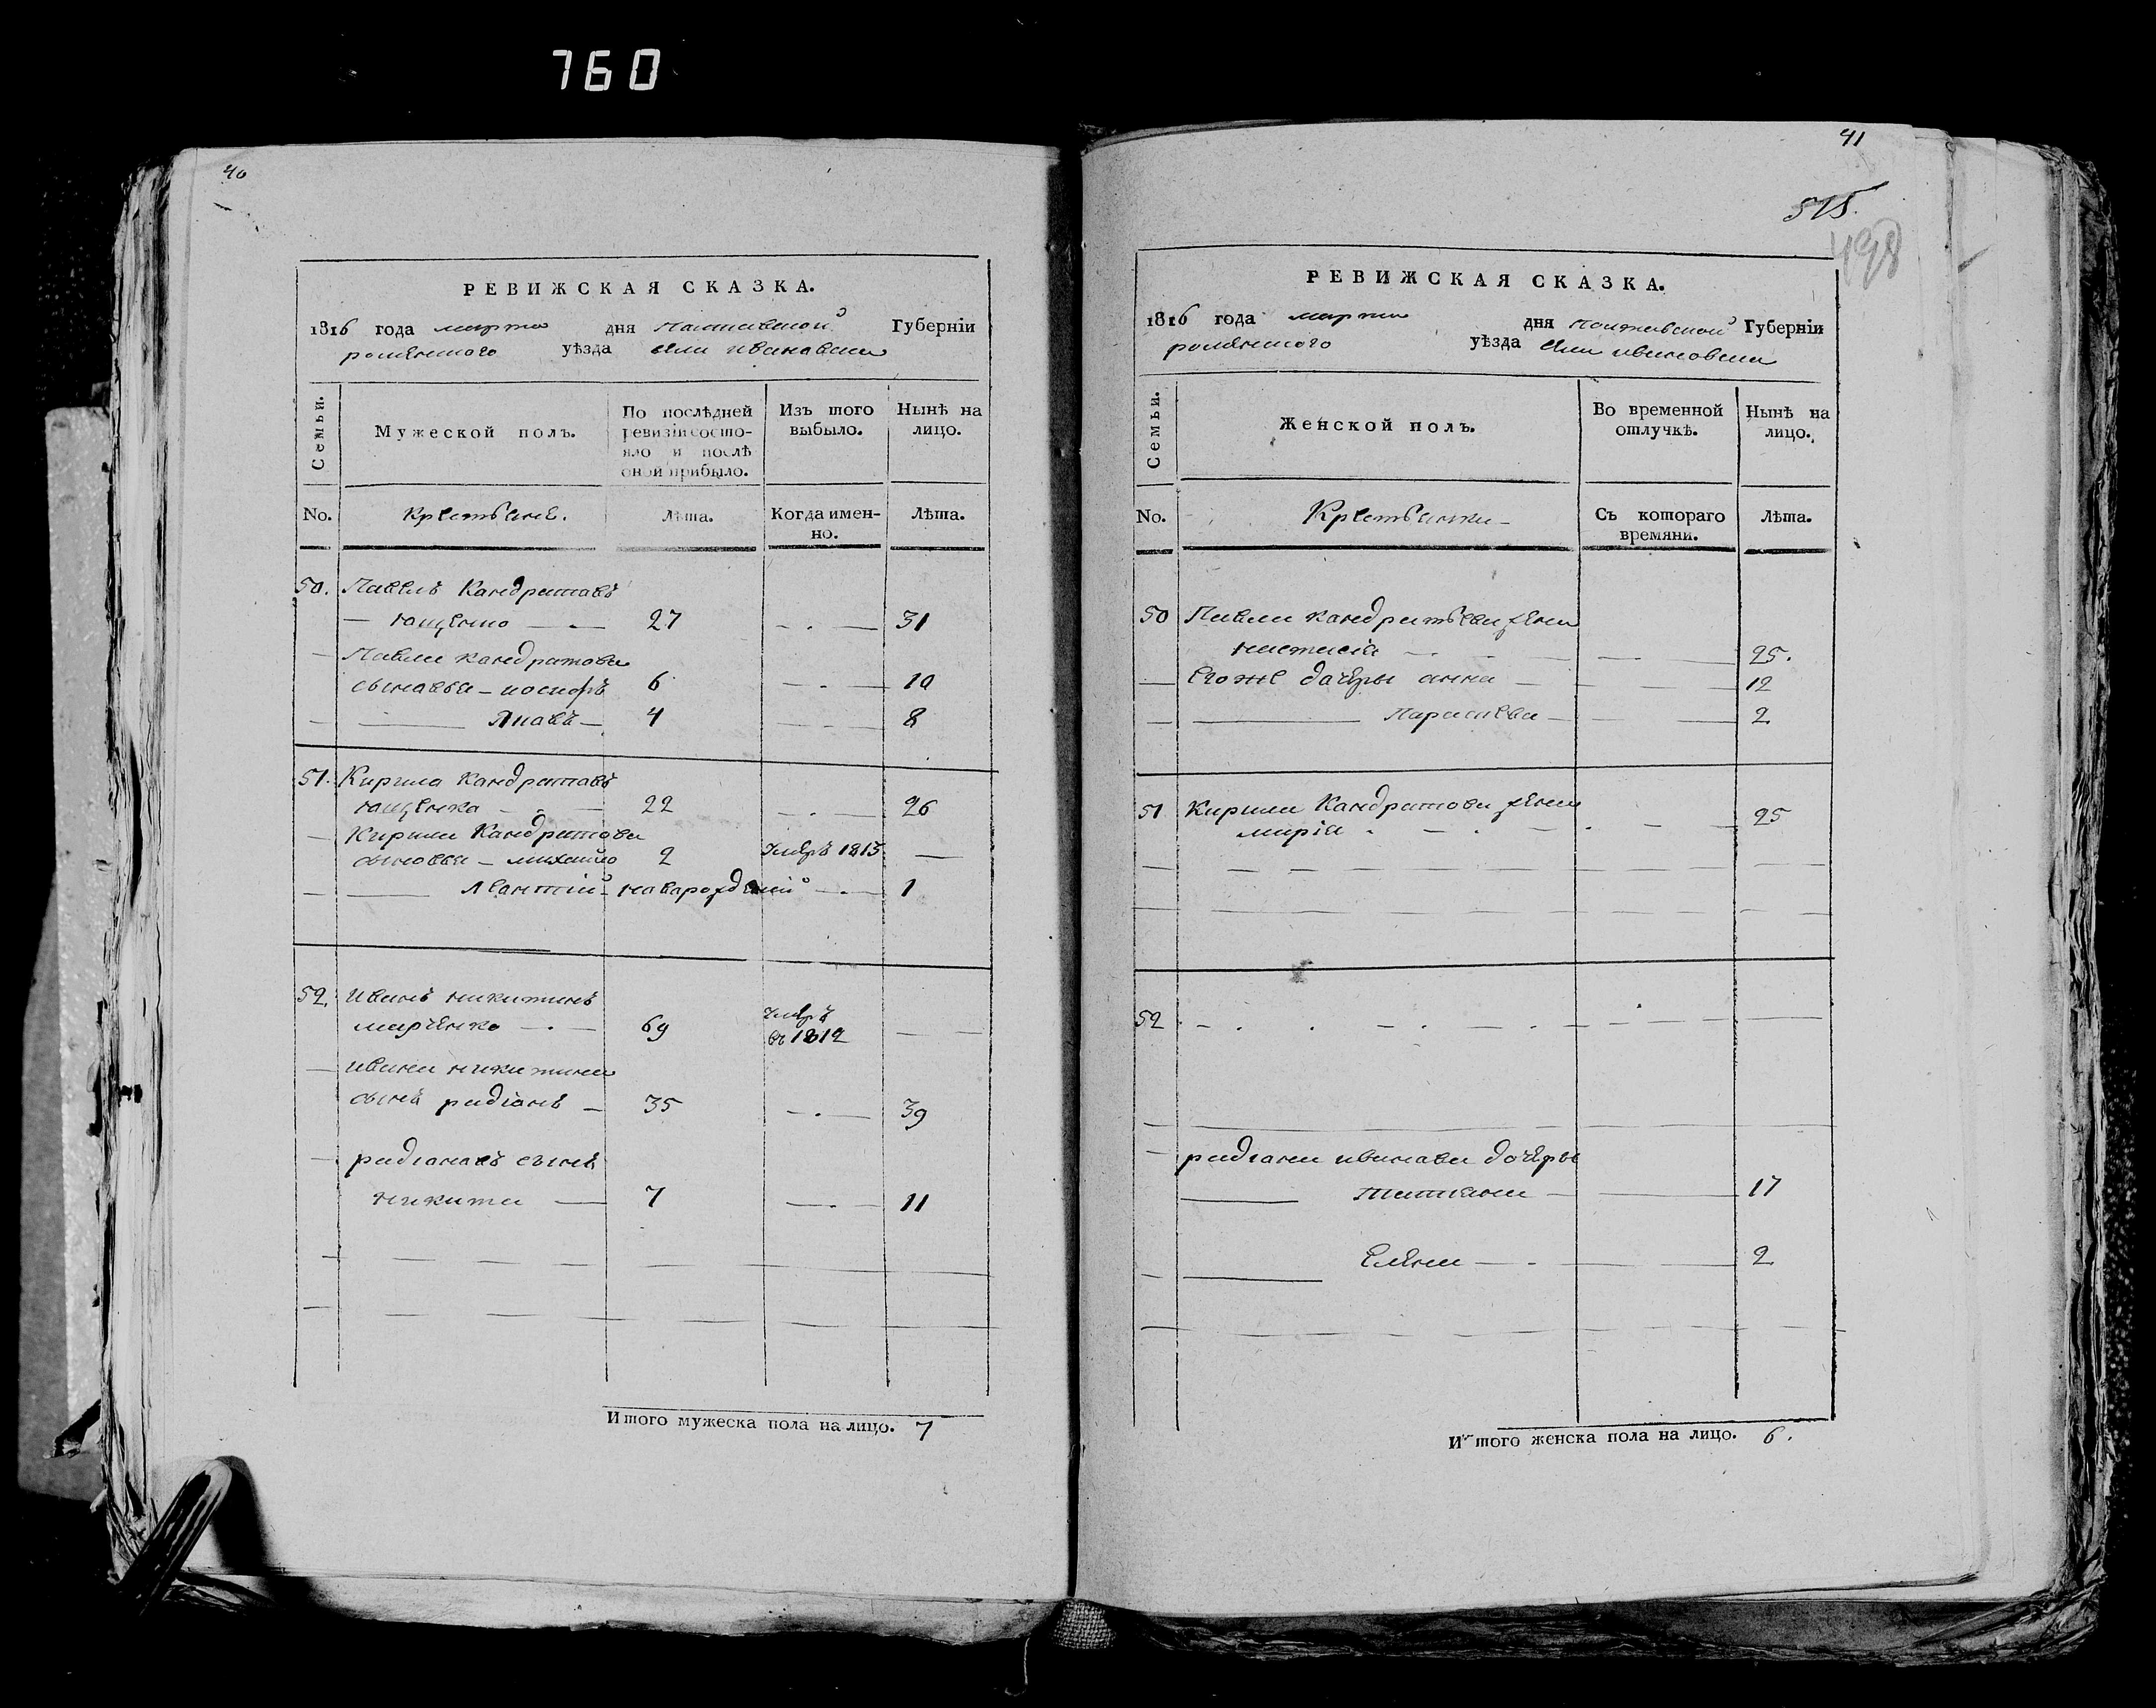 760
40
РЕВИЖСКАЯ СКАЗКА.
1816 года марта дня Полтавской Губерніи
роменского уѣзда села ивановки
Семьи.
Мужеской полъ.
По послѣдней ревизіи состояло и послѣ оной прибыло.
Изъ того выбыло.
Нынѣ на лицо.
No.
Крестьяне.
Лѣта.
Когда именно.
Лѣта.
50. Павелъ Кандратавъ
ющенко 27 31
Павла кандратова
сыновья 6 10
Яковъ 4 8
51. Кирила Кандратавъ
ющенка 22 26
Кирила Кандратова
сыновья михайло 2 умеръ 1813
Леантий наварожденій 1
52. иванъ никитинъ
марченко 69 умеръ
въ 1812
ивана никитина
сынъ радіонъ 35 39
радіонавъ сынъ
никита 7 11
Итого мужеска пола на лицо. 7
41
515.
498
РЕВИЖСКАЯ СКАЗКА.
1816 года марта дня полтавской Губерніи
роменского уѣзда села ивановки
Семьи.
Женской полъ.
Во временной отлучкѣ.
Нынѣ на лицо.
No.
Крестьянки
Съ котораго времяни.
Лѣта.
50 Павла кандратьева жена
настасія 25.
Егоже дочеры анна 12
Параскева 2
51 Кирила Кандратова жена
марія 25
52
радіона иванава дочеры
татьяна 17
Елена 2
Итого женска пола на лицо. 6.